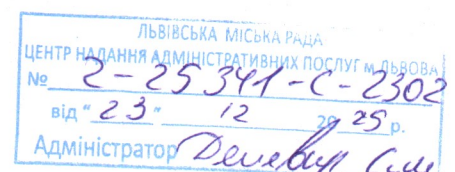 ЛЬВІВСЬКА МІСЬКА РАДА
ЦЕНТР НАДАННЯ АДМІНІСТРАТИВНИХ ПОСЛУГ м. ЛЬВОВА
№ 2-25341-С-2302
від "23" 12 2025 р.
Адміністратор